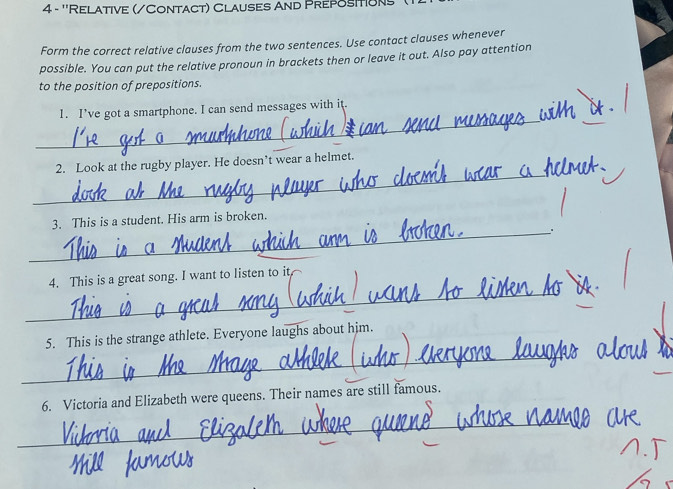 4 - "RELATIVE (/CONTACT) CLAUSES AND PREPOSITIONS
Form the correct relative clauses from the two sentences. Use contact clauses whenever
possible. You can put the relative pronoun in brackets then or leave it out. Also pay attention
to the position of prepositions.
1. I've got a smartphone. I can send messages with it.
I've got a smartphone (which) I can send messages with it.
2. Look at the rugby player. He doesn't wear a helmet.
Look at the rugby player who doesn't wear a helmet.
3. This is a student. His arm is broken.
This is a student which arm is broken.
4. This is a great song. I want to listen to it.
This is a great song (which) want to listen to it.
5. This is the strange athlete. Everyone laughs about him.
This is the strage athlete (who) everyone laughs about
6. Victoria and Elizabeth were queens. Their names are still famous.
Victoria and Elizabeth where queens whose names are
still famous
1.5